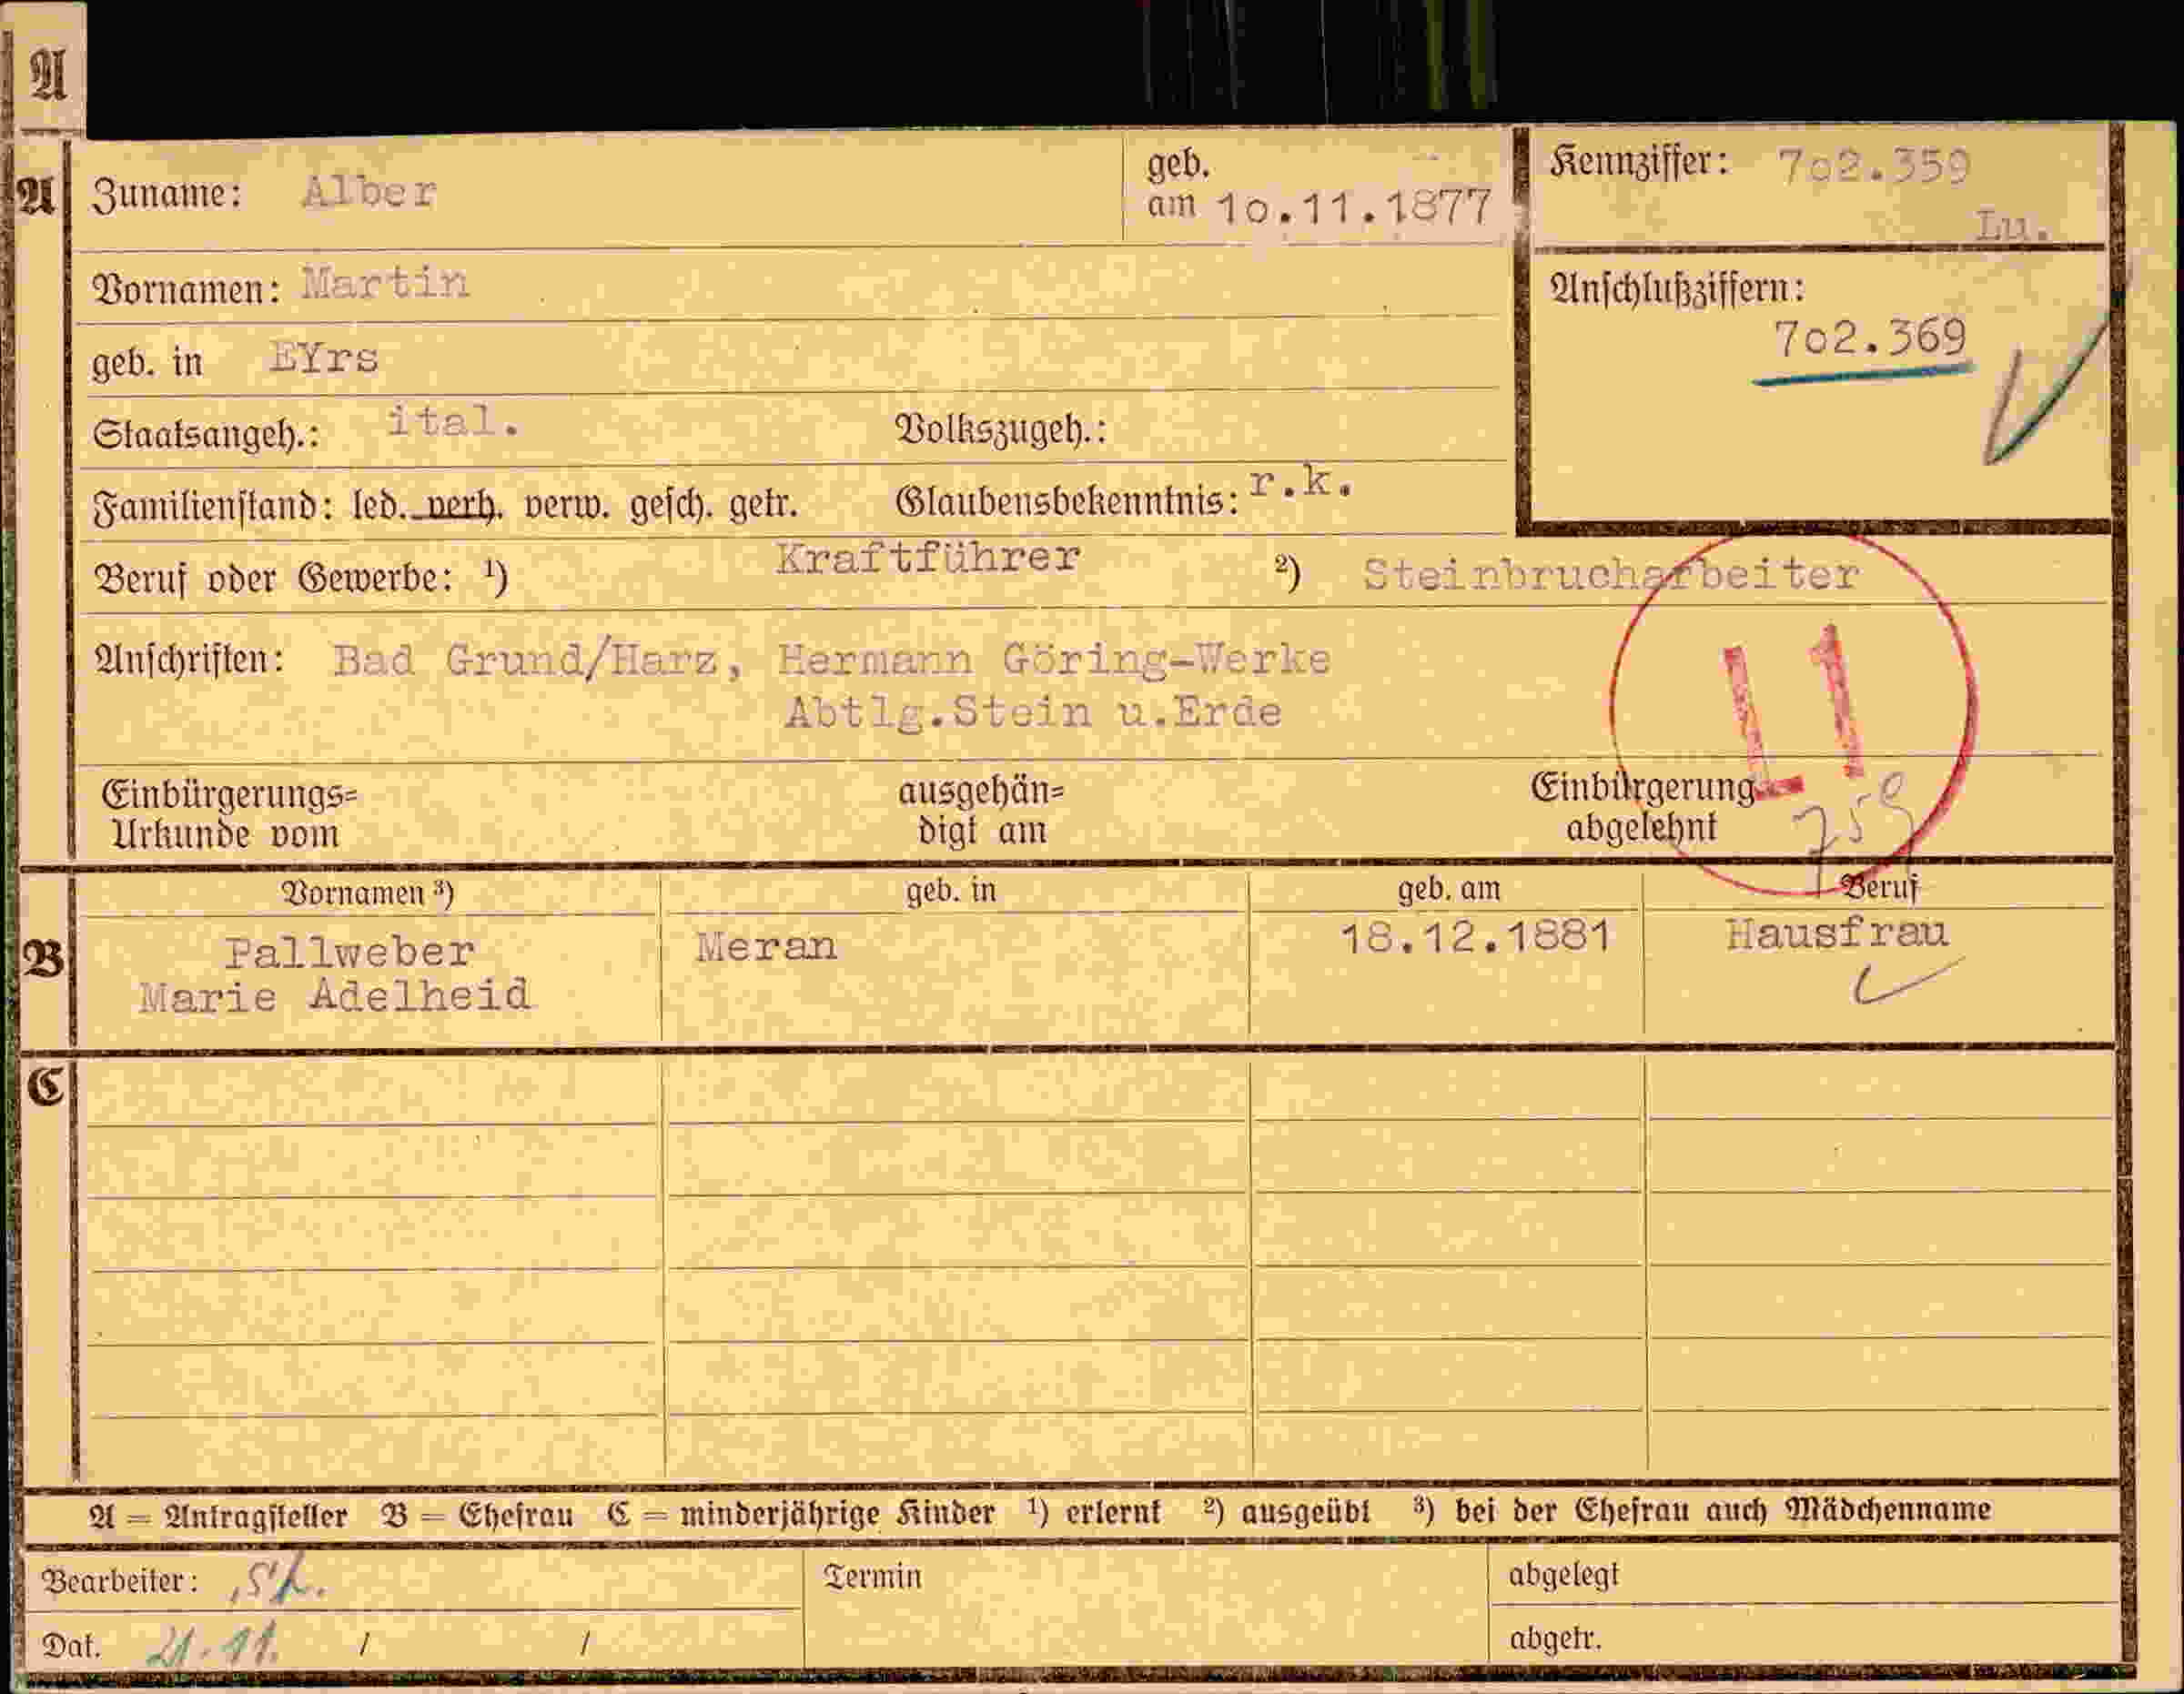 A
A
Zuname: Alber
geb.
am 10.11.1877
Kennziffer: 702.359
Lu.
Vornamen: Martin
Anschlußziffern:
702.369
geb. in EYrs
Staatsangeh.: ital. Volkszugeh.:
Familienstand: led. verh. verw. gesch. getr. Glaubensbekenntnis: r.k.
Beruf oder Gewerbe: ¹) Kraftführer ²) Steinbrucharbeiter
Anschriften: Bad Grund/Harz, Hermann Göring-Werke
Abtlg.Stein u.Erde
L1
Einbürgerungs=
Urkunde vom
ausgehän=
digt am
Einbürgerung
abgelehnt
759
Vornamen ³) geb. in geb. am Beruf
B
Pallweber Meran 18.12.1881 Hausfrau
Marie Adelheid
C
A = Antragsteller B = Ehefrau C = minderjährige Kinder ¹) erlernt ²) ausgeübt ³) bei der Ehefrau auch Mädchenname
Bearbeiter: Termin abgelegt
Dat. 21.11. / / abgetr.